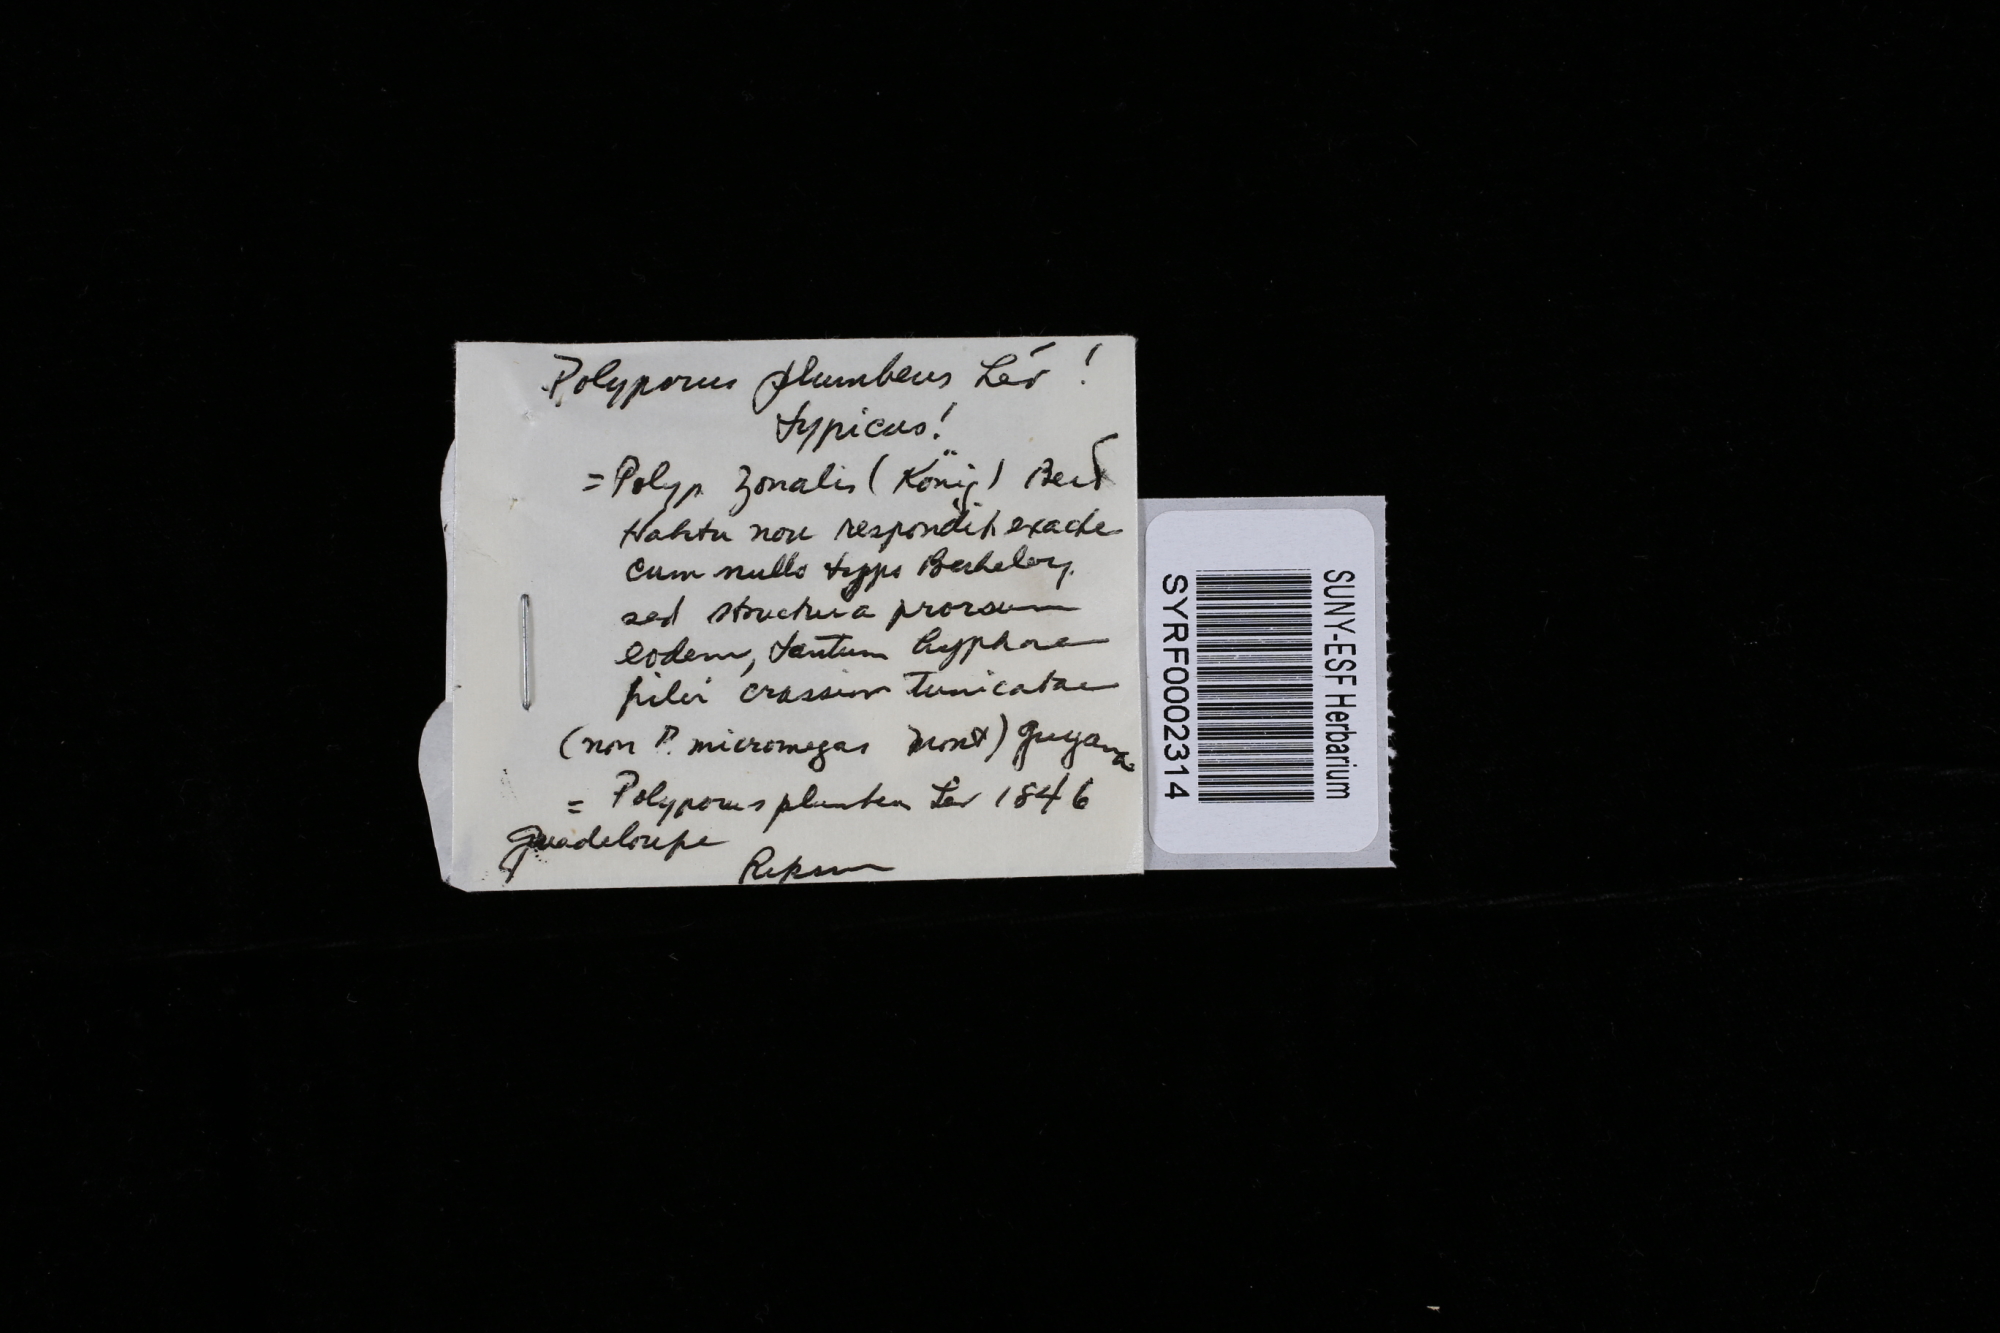 Polyporus plumbeus Lév!
typicus!
= Polyp zonalis (König) Berk
Habitu non respondit exacte
cum nullo typo Berkeley.
sed structura prorsum
eodem, tantum hyphae
pilei crassior tunicatae
(non P. micromegas Mont) Guyana
= Polyporus plumbeus Lev 1846
Guadeloupe
SUNY-ESF Herbarium
SYRF0002314